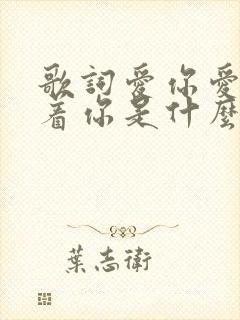 歌詞愛你愛
着你是什麼
葉志衛